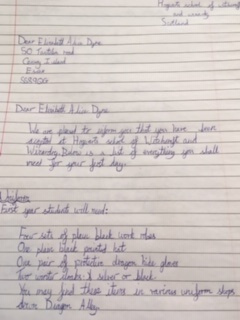 Hogwarts school of witchcraft
and wizardry
Scotland
Dear Elizabeth Dyne
50
Canvey Island
Essex
Dear Elizabeth Dyne
We are pleased to inform you that you have been
accepted at Hogwarts school of Witchcraft and
Wizardry Below is a list of everything you shall
need for your first day.
First year students will need:
Four sets of plain black work robes
One plain black pointed hat
One pair of protective dragon hide gloves
Two winter cloaks silver or black
You may find these items in various uniform shops
Diagon Alley.